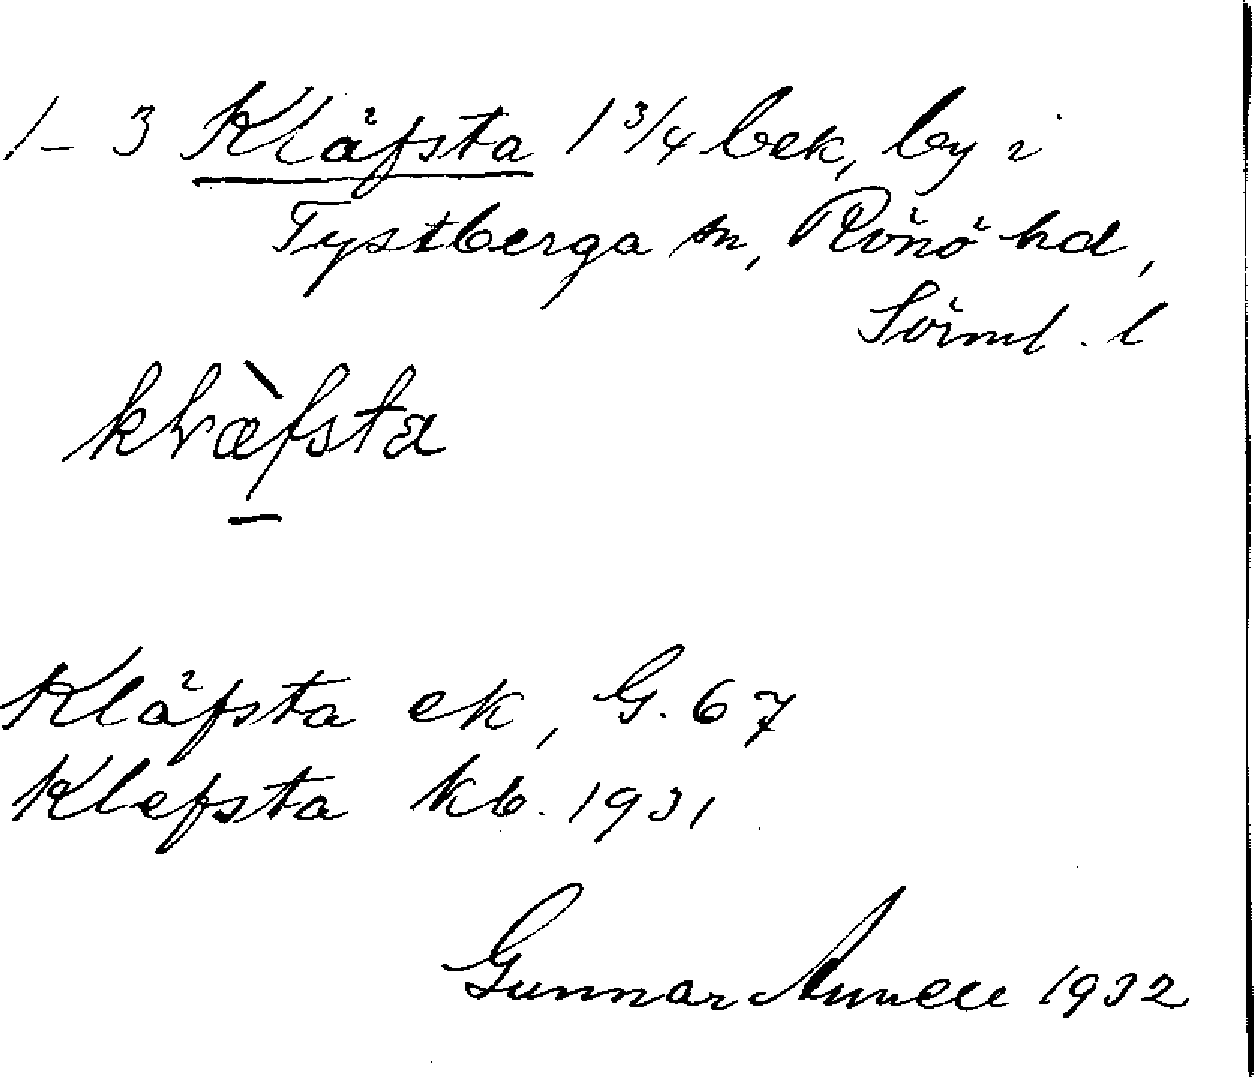 1-3 Kläfsta 1 3/4 bek, by i
Tystberga sn, Rönö hd,
Sörml. l
klæ̀fsta
Kläfsta ek, G. 67
Klefsta kb. 1931
Gunnar 1932